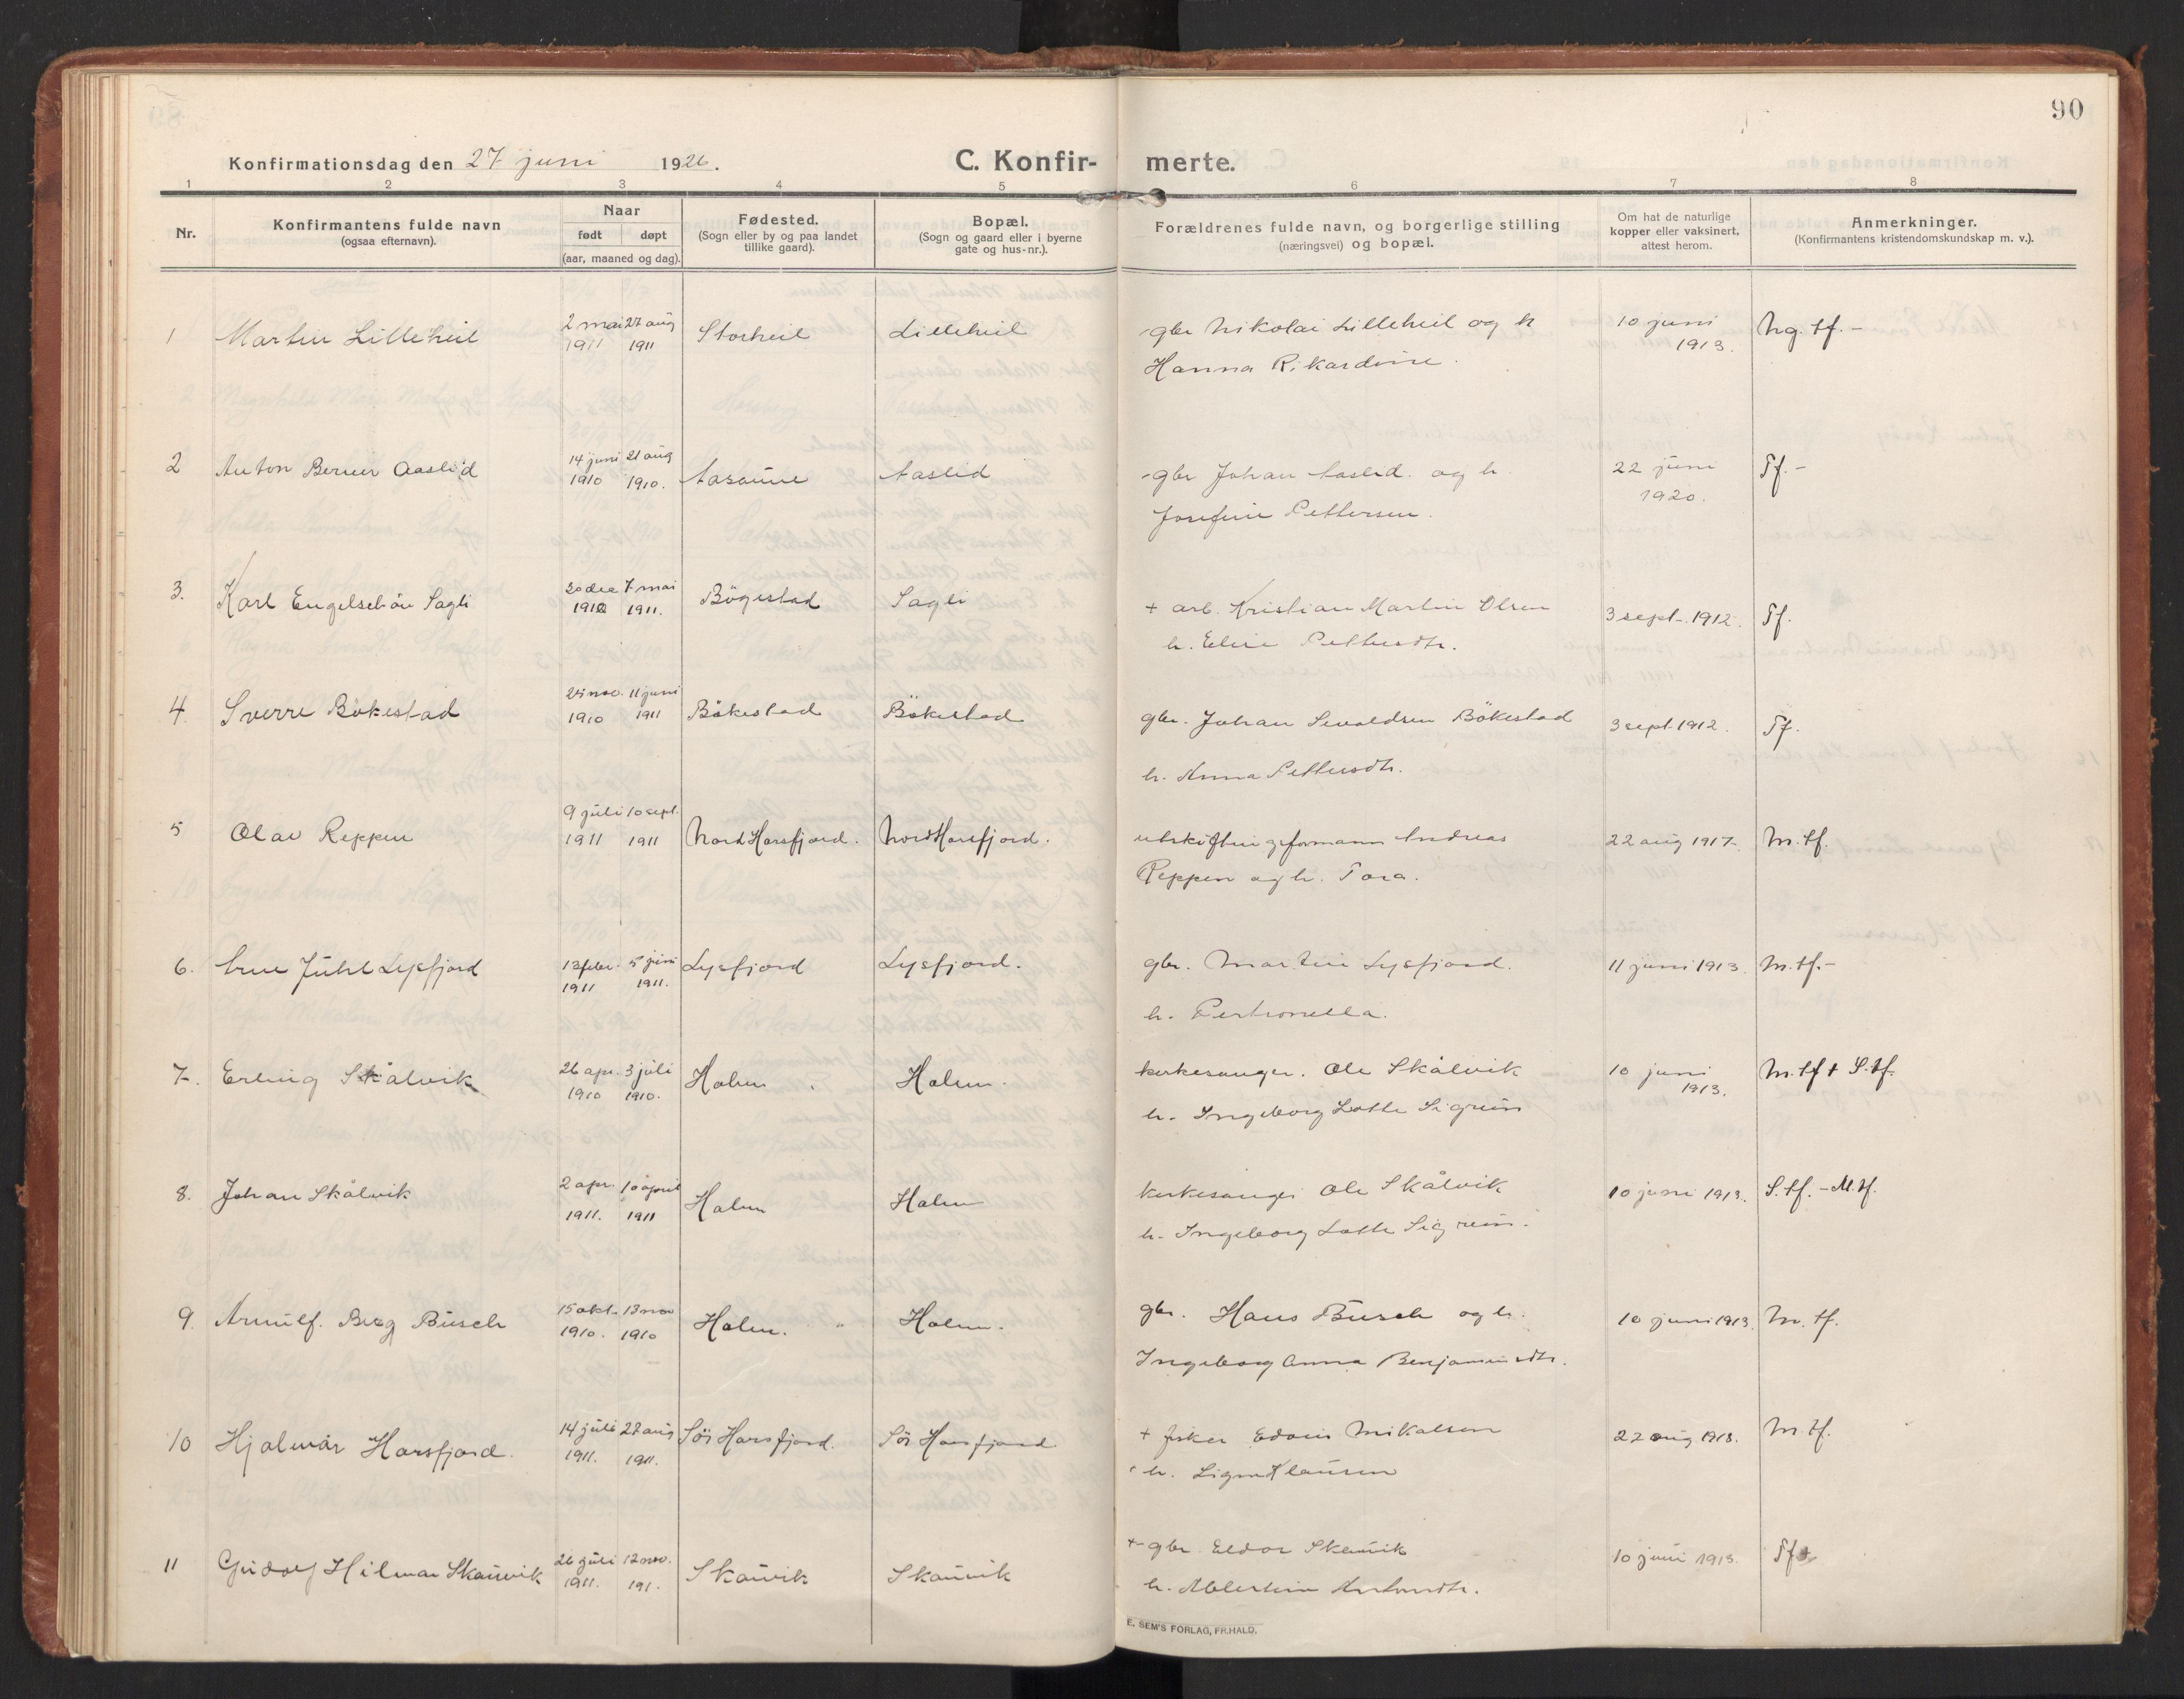 90
Konfirmationsdag den 27 juni 1926. C. Konfir- merte.
1 2 3 4 5 6 7 8
Nr. Konfirmantens fulde navn (ogsaa efternavn). Naar født døpt (aar, maaned og dag). Fødested. (Sogn eller by og paa landet tillike gaard). Bopæl. (Sogn og gaard eller i byerne gate og hus-nr.). Forældrenes fulde navn, og borgerlige stilling (næringsvei) og bopæl. Om hat de naturlige kopper eller vaksinert, attest herom. Anmerkninger. (Konfirmantens kristendomskundskap m. v.).
1 Martin Lilleheil 2 mai 1911 27 aug 1911 Storheil Lilleheil gbr Nikolai Lilleheil og h 10 juni 1913. Ng. tf. -
Hanna Rikardine.
2 Anton Berner Aaslid 14 juni 1910 21 aug 1910. Aasaune Aaslid gbr Johan Aaslid. og h. 22 juni 1920. Tf. -
Josefine Pettersen.
3. Karl Engelsehön Sagli 30 dec 1910 7 mai 1911. Bögestad Sagli + arb. Kristian Martin Olsen 3 sept. 1912. Tf.
h. Eline Pettersdtr.
4. Sverre Bökestad 25 nov. 1910 11 juni 1911 Bökestad Bökestad gbr. Johan Sevaldsen Bökestad 3 sept 1912. Tf.
h. Anna Pettersdtr.
5 Olav Reppen 9 juli 1911 10 sept. 1911 Nord Harsfjord. Nord Harsfjord. utskiftningsformann Andreas 22 aug 1917. M. tf.
Reppen og h. Tora.
6. Arne Juhl Lysfjord 13 febr. 1911 5 juni 1911. Lysfjord Lysfjord. gbr. Martin Lysfjord. 11 juni 1913. M. tf. -
h. Pertronella.
7. Erling Skålvik 26 apr. 1910 3 juli 1910. Holm Holm. kirkesanger. Ole Skålvik 10 juni 1913. M. tf + S. tf.
h. Ingeborg Lotte Sigrun
8. Johan Skålvik 2 apr. 1911. 10 april 1911 Holm Holm kirkesanger Ole Skålvik 10 juni 1913. S. tf. - M. tf.
h. Ingeborg Lotte Sigrun.
9. Arnulf. Berg Busch 15 okt. 1910. 13 nov 1910 Holm. " Holm. gbr. Hans Busch og h. 10 juni 1913. M. tf.
Ingeborg Anna Benjaminsdtr.
10 Hjalmar Harsfjord. 14 juli 1911. 27 aug 1911. Sör Harsfjord. Sör Harsfjord + fisker Edvin Mikalsen 22 aug 1918. M. tf.
h. Klausen
11 Gudolf Hilmar Skauvik 26 juli 1911. 12 nov. 191. Skauvik Skauvik + gbr Eldor Skauvik 10 juni 1913. Tf
h. Albertine
E. SEM'S FORLAG, FR.HALD.